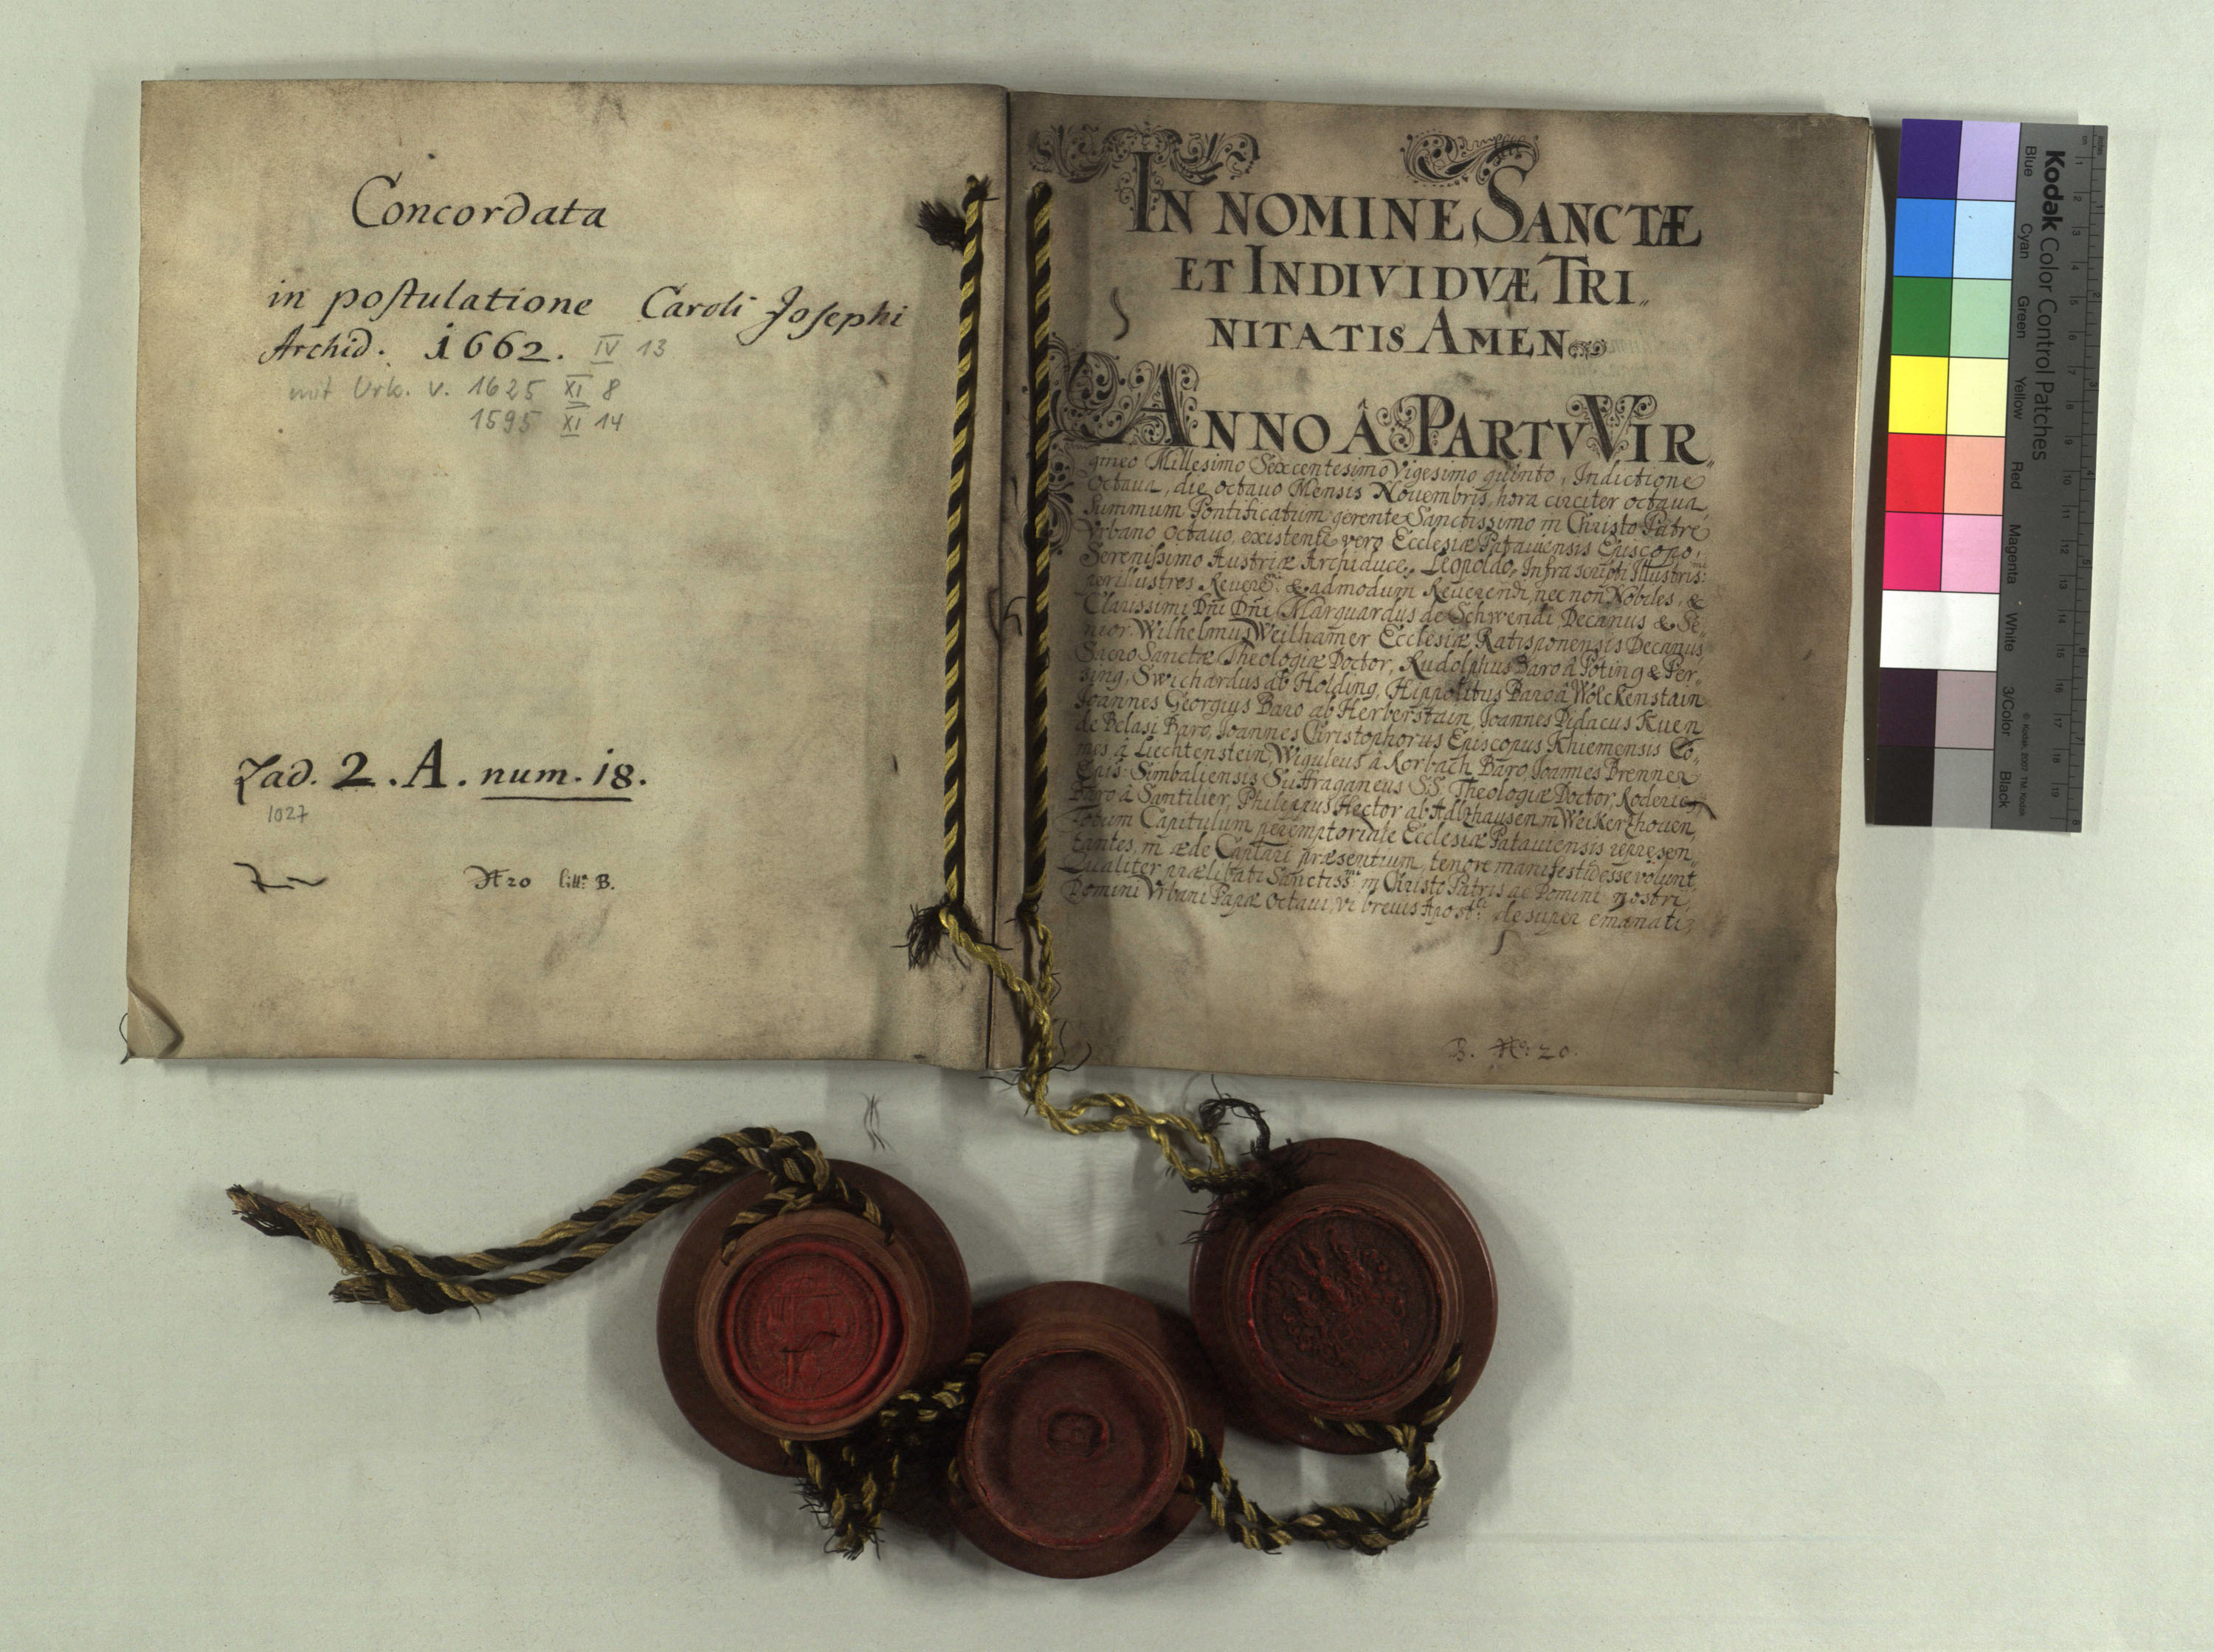 Concordata
in postulatione Caroli Josephi
Archid. 1662. IV 13
mit Urk. v. 1625 XI 8
1595 XI 14
Lad. 2. A. num. 18.
1027
N 20 litt. B.
IN NOMINE SANCTÆ
ET INDIVIDVÆ TRI„
NITATIS AMEN
ANNO Â PARTV VIR„
gineo Millesimo Sexcentesimo Vigesimo quinto, Indictione
Octaua, die octauo Mensis Nouembris, hora circiter octaua,
Summum Pontificatum gerente Sanctissimo in Christo Patre
Vrbano Octauo, existente vero Ecclesiæ Patauiensis Episcopo,
Serenissimo Austriæ Archiduce, Leopoldo, Infra scripti Illustris:
perillustres Reuerend: & admodum Reuerendi, nec non Nobiles, &
Clarissimi Dñi Dñi Marquardus de Schwendi Decanus & Se„
nior, Wilhelmus Weilhamer Ecclesiæ Ratisponensis Decanus
Sacro Sanctæ Theologiæ Doctor, Rudolphus Baro â Pöting & Per„
sing, Swichardus ab Holding, Hippolitus Baro â Wolckenstain
Joannes Georgius Baro ab Herberstain, Joannes Didacus Kuen
de Belasi Baro, Joannes Christophorus Episcopus Khiemensis Co„
mes â Liechtenstein, Wiguleus â Rorbach Baro, Joannes Brenner
Epis: Simbaliensis Suffraganeus S.S. Theologiæ Doctor, Roderic9
Baro â Santilier, Philippus Hector ab Adlzhausen in Weikerzhouen,
Totum Capitulum peremptoriale Ecclesiæ Patauiensis represen„
tantes, in æde Capitlari præsentium, tenore manifestũ esse volunt,
Qualiter prælibati Sanctissmi in Christo Patris ac Domini nostri,
Domini Vrbani Papæ Octaui, vi breuis Apostci desuper emanati
B. No: 20.
Kodak Color Control Patches
Blue
Cyan
Green
Yellow
Red
Magenta
White
3/Color
Black
© Kodak, 2007 TM: Kodak